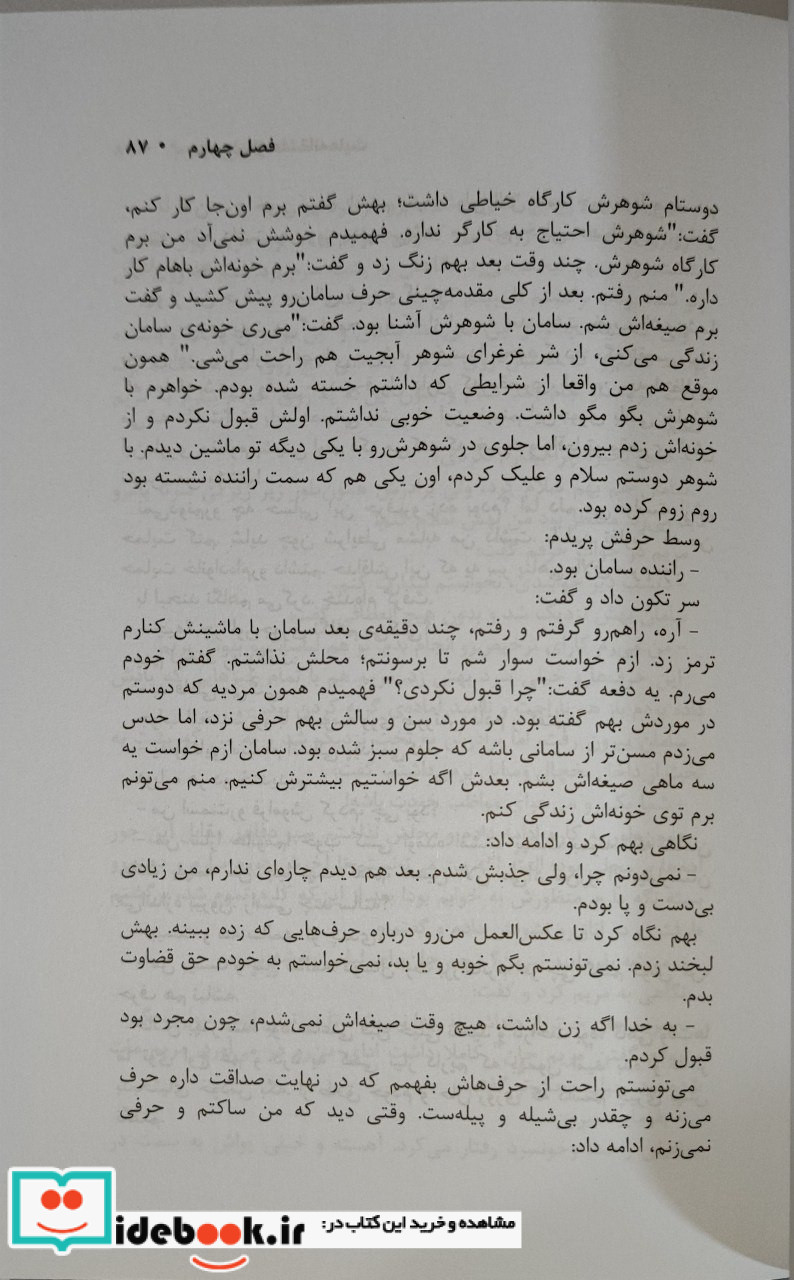 فصل چهارم • ۸۷
دوستام شوهرش کارگاه خیاطی داشت؛ بهش گفتم برم اون‌جا کار کنم،
گفت:"شوهرش احتیاج به کارگر نداره. فهمیدم خوشش نمی‌آد من برم
کارگاه شوهرش. چند وقت بعد بهم زنگ زد و گفت:"برم خونه‌اش باهام کار
داره." منم رفتم. بعد از کلی مقدمه‌چینی حرف سامان‌رو پیش کشید و گفت
برم صیغه‌اش شم. سامان با شوهرش آشنا بود. گفت:"می‌ری خونه‌ی سامان
زندگی می‌کنی، از شر غرغرای شوهر آبجیت هم راحت می‌شی." همون
موقع هم من واقعا از شرایطی که داشتم خسته شده بودم. خواهرم با
شوهرش بگو مگو داشت. وضعیت خوبی نداشتم. اولش قبول نکردم و از
خونه‌اش زدم بیرون، اما جلوی در شوهرش‌رو با یکی دیگه تو ماشین دیدم. با
شوهر دوستم سلام و علیک کردم، اون یکی هم که سمت راننده نشسته بود
روم زوم کرده بود.
وسط حرفش پریدم:
- راننده سامان بود.
سر تکون داد و گفت:
- آره، راهم‌رو گرفتم و رفتم، چند دقیقه‌ی بعد سامان با ماشینش کنارم
ترمز زد. ازم خواست سوار شم تا برسونتم؛ محلش نذاشتم. گفتم خودم
می‌رم. یه دفعه گفت:"چرا قبول نکردی؟" فهمیدم همون مردیه که دوستم
در موردش بهم گفته بود. در مورد سن و سالش بهم حرفی نزد، اما حدس
می‌زدم مسن‌تر از سامانی باشه که جلوم سبز شده بود. سامان ازم خواست یه
سه ماهی صیغه‌اش بشم. بعدش اگه خواستیم بیشترش کنیم. منم می‌تونم
برم توی خونه‌اش زندگی کنم.
نگاهی بهم کرد و ادامه داد:
- نمی‌دونم چرا، ولی جذبش شدم. بعد هم دیدم چاره‌ای ندارم، من زیادی
بی‌دست و پا بودم.
بهم نگاه کرد تا عکس‌العمل من‌رو درباره حرف‌هایی که زده ببینه. بهش
لبخند زدم. نمی‌تونستم بگم خوبه و یا بد، نمی‌خواستم به خودم حق قضاوت
بدم.
- به خدا اگه زن داشت، هیچ وقت صیغه‌اش نمی‌شدم، چون مجرد بود
قبول کردم.
می‌تونستم راحت از حرف‌هاش بفهمم که در نهایت صداقت داره حرف
می‌زنه و چقدر بی‌شیله و پیله‌ست. وقتی دید که من ساکتم و حرفی
نمی‌زنم، ادامه داد:
مشاهده و خرید این کتاب در:
idebook.ir